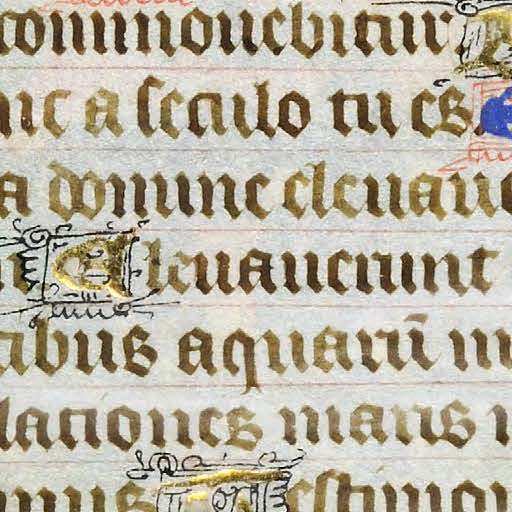 commouebitur
nc a seculo tu es
a domine eleuaue
Eleuauerunt
cibus aquarū m
lationes maris